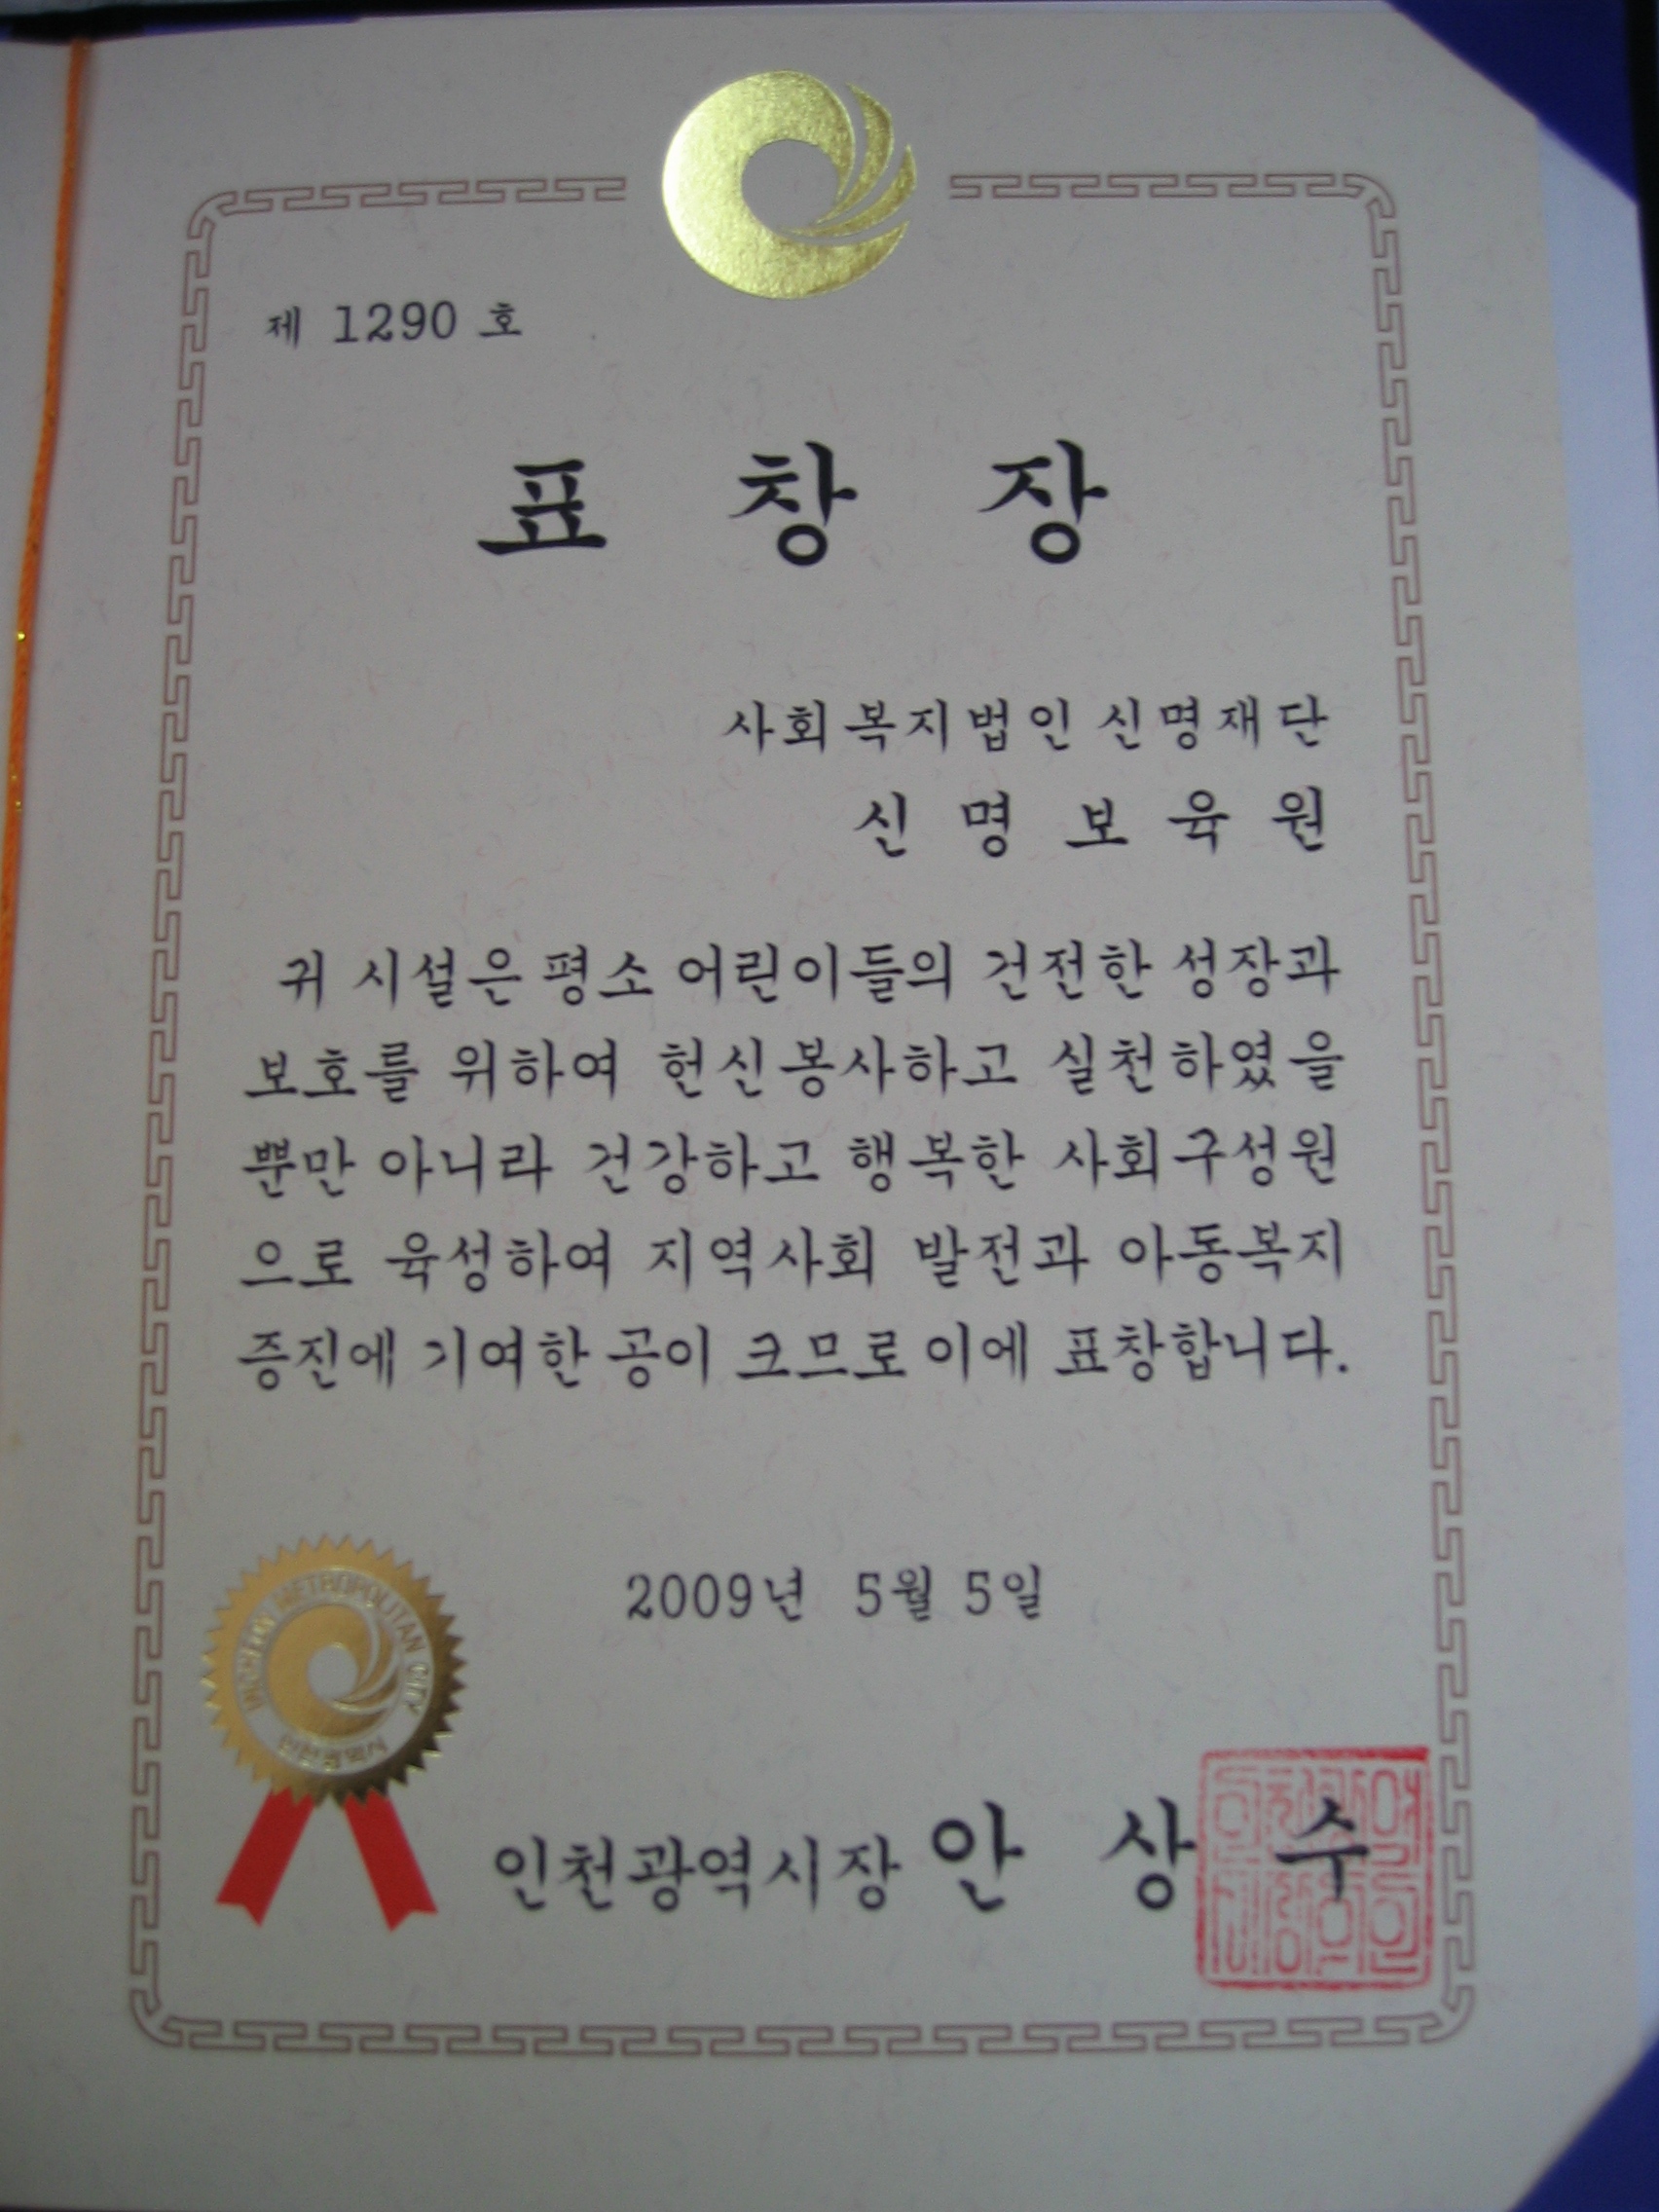 제 1290 호
표 창 장
사회복지법인 신명재단
신 명 보 육 원
귀 시설은 평소 어린이들의 건전한 성장과
보호를 위하여 헌신봉사하고 실천하였을
뿐만 아니라 건강하고 행복한 사회구성원
으로 육성하여 지역사회 발전과 아동복지
증진에 기여한 공이 크므로 이에 표창합니다.
2009년 5월 5일
INCHEON METROPOLITAN CITY
인천광역시
인천광역시장 안 상 수